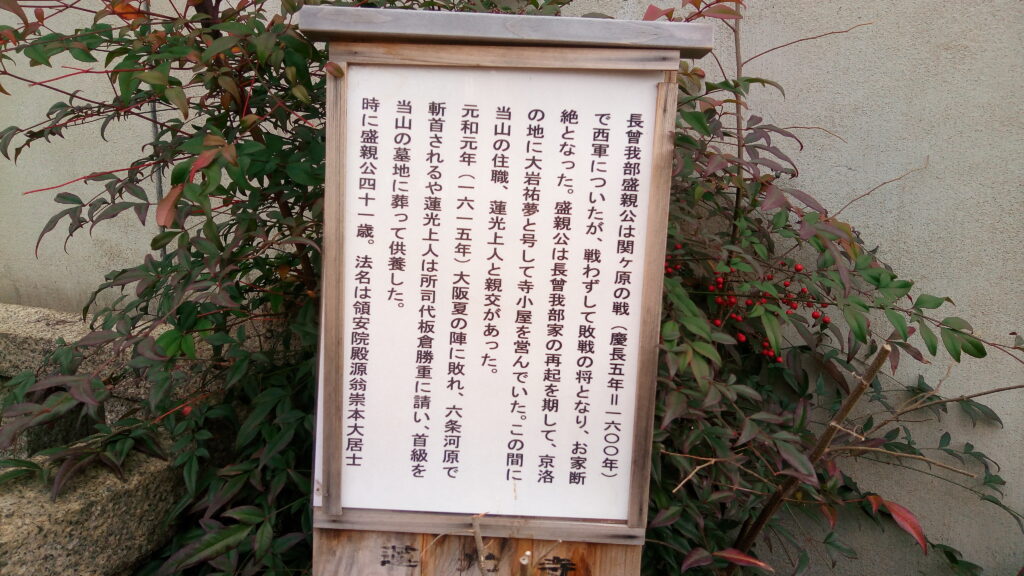 長曾我部盛親公は関ヶ原の戦（慶長五年＝一六〇〇年）
で西軍についたが、戦わずして敗戦の将となり、お家断
絶となった。盛親公は長曾我部家の再起を期して、京洛
の地に大岩祐夢と号して寺小屋を営んでいた。この間に
当山の住職、蓮光上人と親交があった。
元和元年（一六一五年）大阪夏の陣に敗れ、六条河原で
斬首されるや蓮光上人は所司代板倉勝重に請い、首級を
当山の墓地に葬って供養した。
時に盛親公四十一歳。法名は領安院殿源翁崇本大居士
蓮光寺